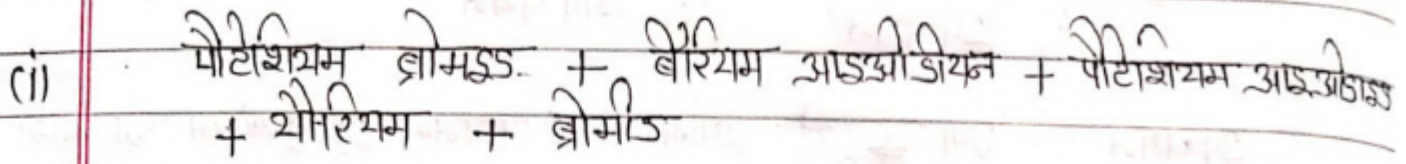 (i) पौटेशियम ब्रोमइड. + बेरियम आइओडीयन + पौटेशियम आइओडाइड
+ थौरियम + ब्रोमीड